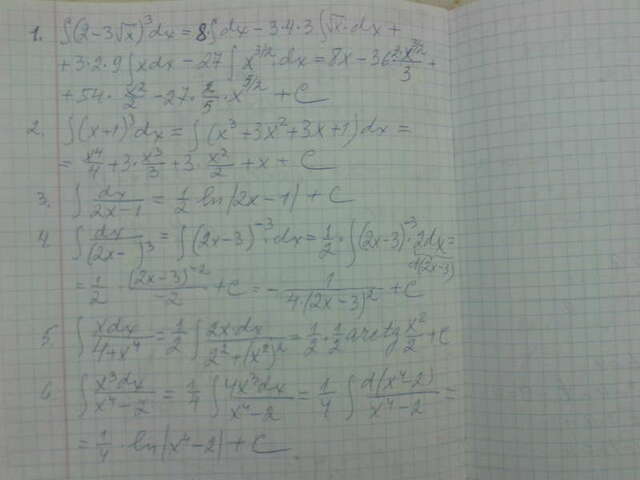 1. ∫(2-3√x)³dx = 8∫dx - 3·4·3∫√x·dx +
+3·2·9∫xdx - 27∫x^{3/2}·dx = 8x - 36·\frac{2·x^{3/2}}{3} +
+54·\frac{x²}{2} - 27·\frac{2}{5}·x^{5/2} + C
2. ∫(x+1)³dx = ∫(x³+3x²+3x+1)dx =
= \frac{x⁴}{4} + 3·\frac{x³}{3} + 3·\frac{x²}{2} + x + C
3. ∫\frac{dx}{2x-1} = \frac{1}{2} ln|2x-1| + C
4. ∫\frac{dx}{(2x-)³} = ∫(2x-3)^{-3}·dx = \frac{1}{2}·∫(2x-3)^{-3}·2dx =
d(2x-3)
= \frac{1}{2}·\frac{(2x-3)^{-2}}{-2} + C = -\frac{1}{4·(2x-3)²} + C
5. ∫\frac{xdx}{4+x⁴} = \frac{1}{2}∫\frac{2x·dx}{2²+(x²)²} = \frac{1}{2}·\frac{1}{2} arctg\frac{x²}{2} + C
6 ∫\frac{x³dx}{x⁴-2} = \frac{1}{4}∫\frac{4x³dx}{x⁴-2} = \frac{1}{4}∫\frac{d(x⁴-2)}{x⁴-2} =
= \frac{1}{4}·ln|x⁴-2| + C.